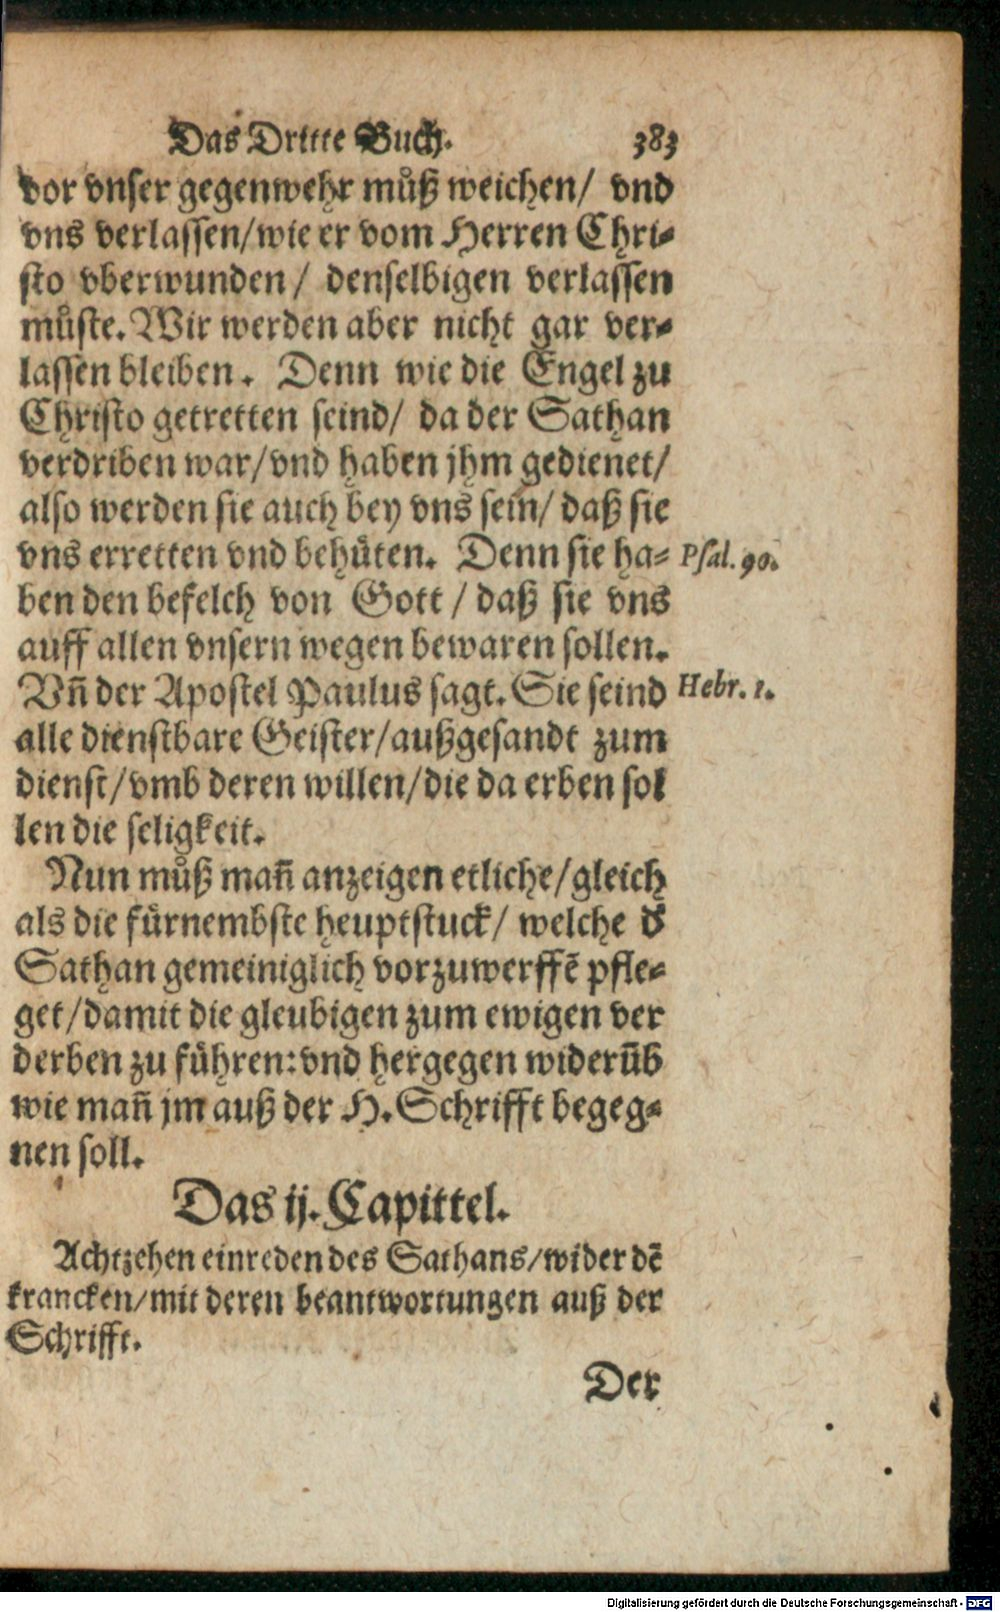 Das Dritte Buch. 383
vor vnser gegenwehr můß weichen/ vnd
vns verlassen/wie er vom Herren Chri-
sto vberwunden/ denselbigen verlassen
můste. Wir werden aber nicht gar ver-
lassen bleiben. Denn wie die Engel zu
Christo getretten seind/ da der Sathan
verdriben war/vnd haben jhm gedienet/
also werden sie auch bey vns sein/ daß sie
vns erretten vnd behüten. Denn sie ha- Psal. 90.
ben den befelch von Gott/ daß sie vns
auff allen vnsern wegen bewaren sollen.
Vñ der Apostel Paulus sagt. Sie seind Hebr. 1.
alle dienstbare Geister/außgesandt zum
dienst/vmb deren willen/die da erben sol
len die seligkeit.
Nun můß mañ anzeigen etliche/gleich
als die fürnembste heuptstuck/ welche dˀ
Sathan gemeiniglich vorzuwerffẽ pfle-
get/damit die gleubigen zum ewigen ver
derben zu führen: vnd hergegen widerũb
wie mañ jm auß der H. Schrifft begeg-
nen soll.
Das ij. Capittel.
Achtzehen einreden des Sathans/wider dẽ
krancken/mit deren beantwortungen auß der
Schrifft.
Der
Digitalisierung gefördert durch die Deutsche Forschungsgemeinschaft - DFG